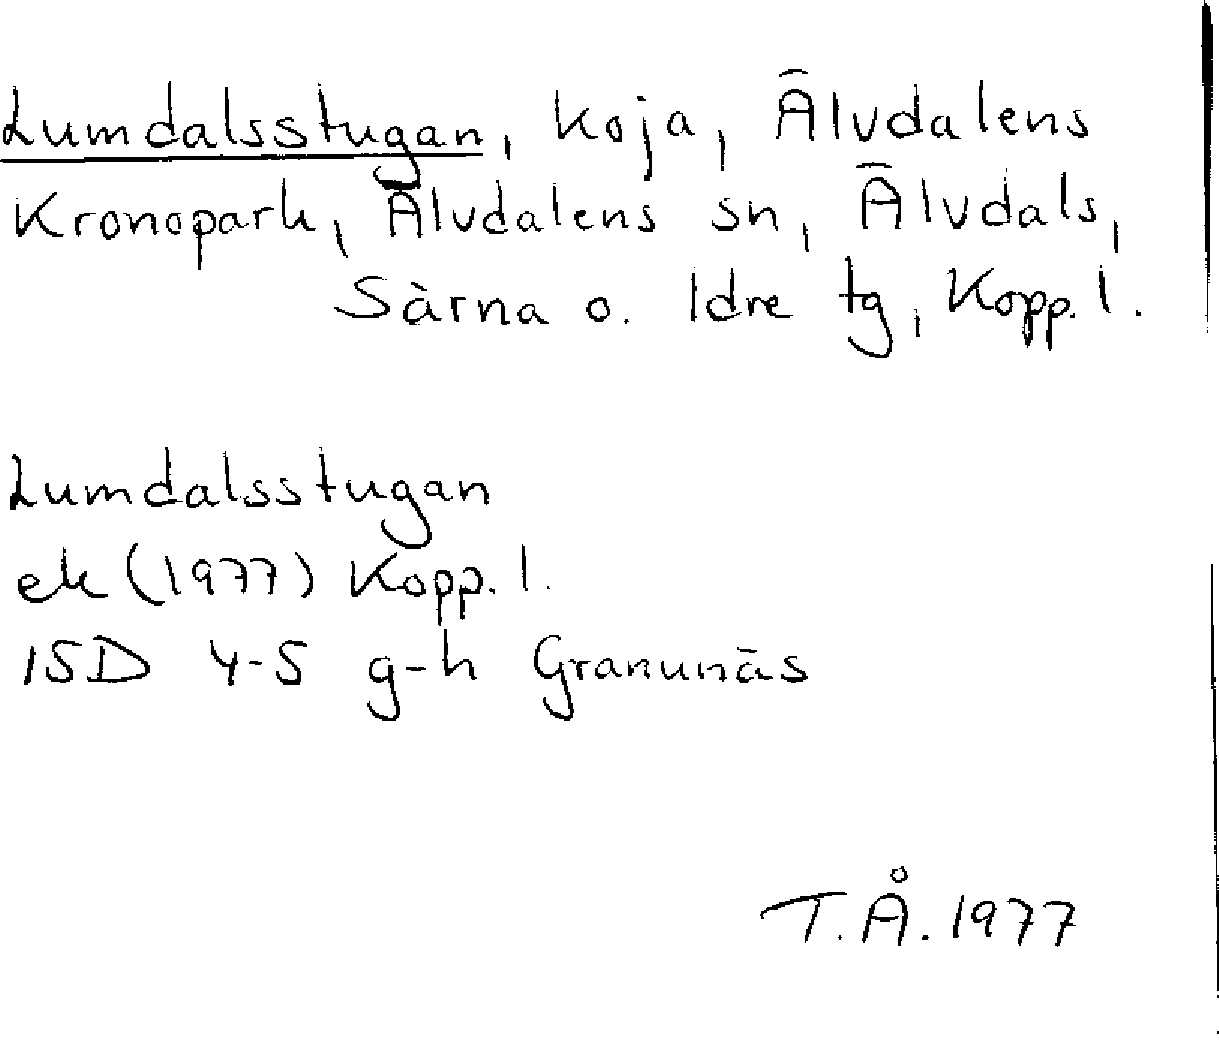 Lumdalsstugan, koja, Älvdalens
Kronopark, Älvdalens sn, Älvdals,
Särna o. Idre tg, Kopp. l.
Lumdalsstugan
ek (1977) Kopp. l.
15D 4-5 g-h Granunäs
T.Å. 1977